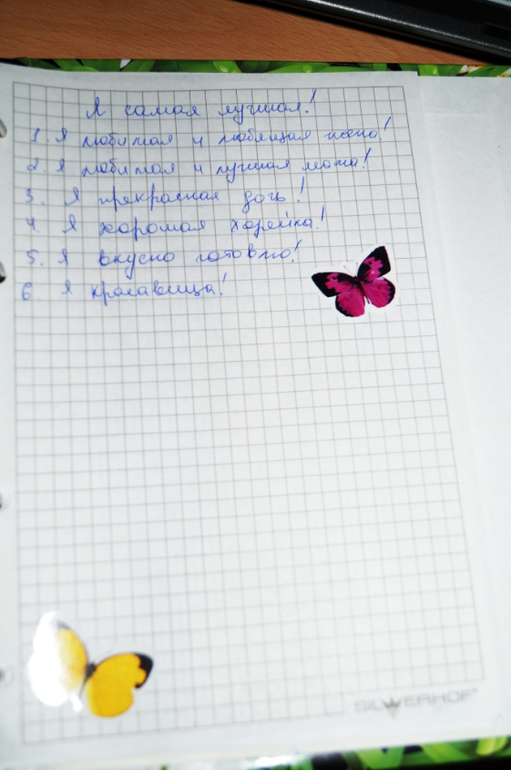 Я самая лучшая!
1. Я любимая и любящая жена!
2 Я любимая и лучшая мама!
3. Я прекрасная дочь!
4. Я хорошая хозяйка!
5. Я вкусно готовлю!
6 Я красавица!
SILWERHOF